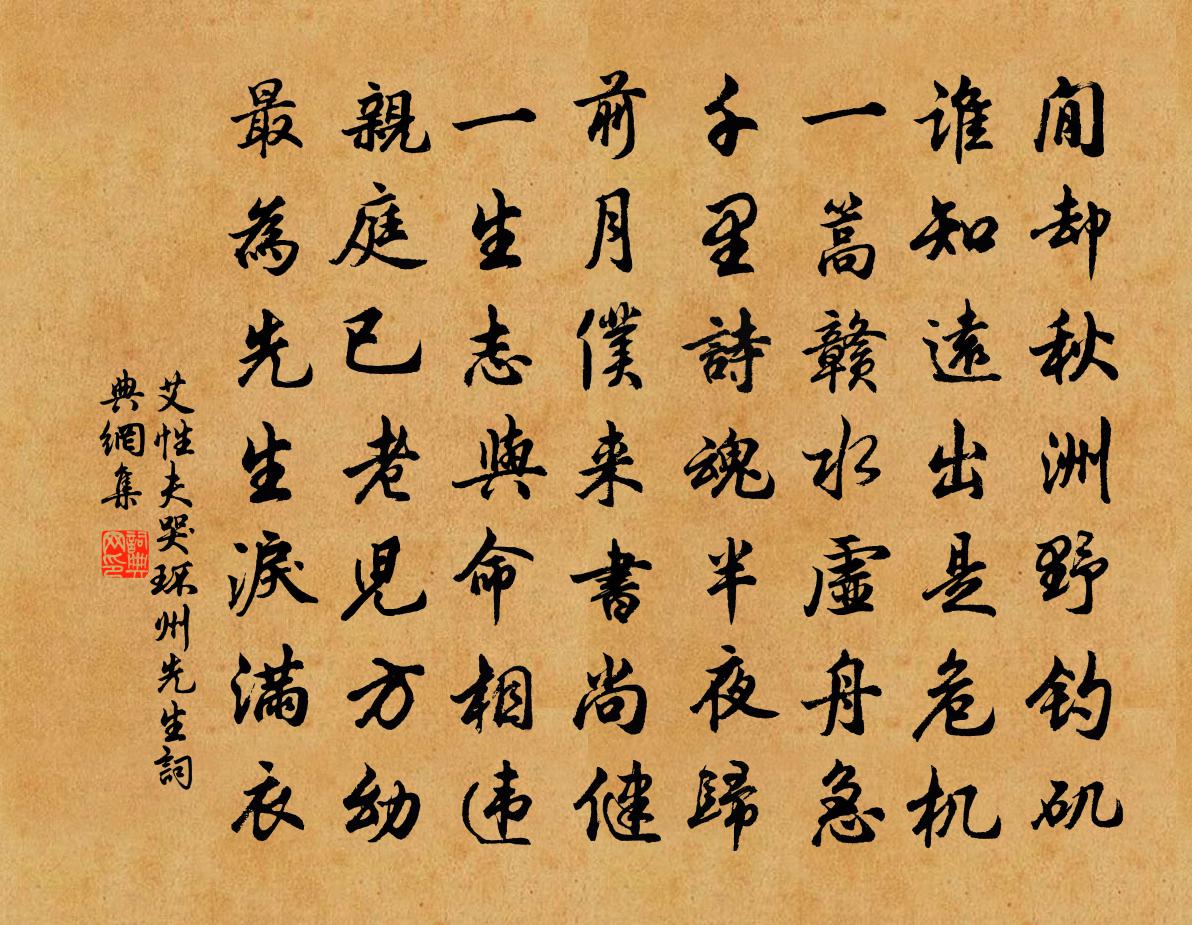 閒却秋洲野钓矶
谁知遠出是危机
一篙赣水虛舟急
千里詩魂半夜歸
前月僕来書尚健
一生志與命相违
親庭已老兒方幼
最為先生淚滿衣
艾性夫哭琛州先生詞
典網集
詞典网印